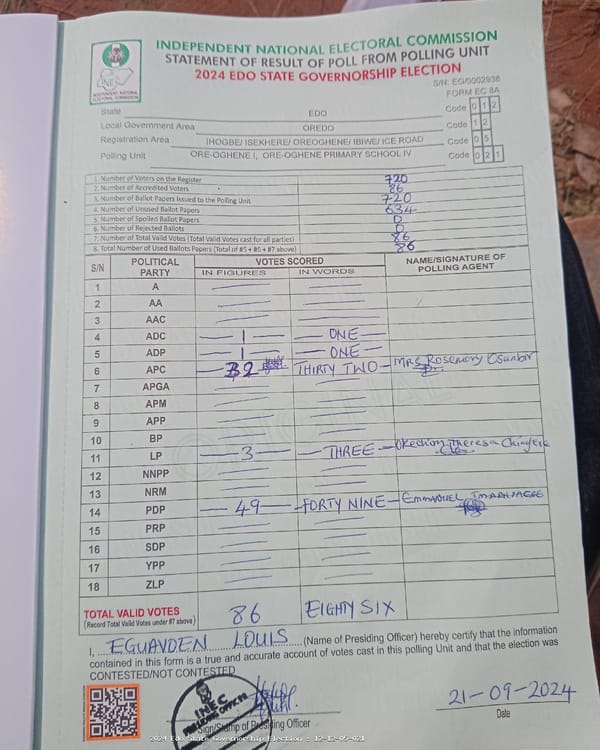 INDEPENDENT NATIONAL ELECTORAL COMMISSION
STATEMENT OF RESULT OF POLL FROM POLLING UNIT
2024 EDO STATE GOVERNORSHIP ELECTION
S/N: EG/0002938
FORM EC 8A
INDEPENDENT NATIONAL ELECTORAL COMMISSION
State EDO Code 0 1 2
Local Government Area OREDO Code 1 2
Registration Area IHOGBE/ ISEKHERE/ OREOGHENE/ IBIWE/ ICE ROAD Code 0 5
Polling Unit ORE-OGHENE I, ORE-OGHENE PRIMARY SCHOOL IV Code 0 2 1
1. Number of Voters on the Register 720
2. Number of Accredited Voters 86
3. Number of Ballot Papers Issued to the Polling Unit 720
4. Number of Unused Ballot Papers 634
5. Number of Spoiled Ballot Papers 0
6. Number of Rejected Ballots 0
7. Number of Total Valid Votes (Total Valid Votes cast for all parties) 86
8. Total Number of Used Ballots Papers (Total of #5 + #6 + #7 above) 86
S/N POLITICAL PARTY VOTES SCORED NAME/SIGNATURE OF POLLING AGENT
IN FIGURES IN WORDS
1 A
2 AA
3 AAC
4 ADC 1 ONE
5 ADP 1 ONE
6 APC 32 THIRTY TWO MRS Rosemary Osunbor
7 APGA
8 APM
9 APP
10 BP
11 LP 3 THREE Theresa
12 NNPP
13 NRM
14 PDP 49 FORTY NINE EMMANUEL
15 PRP
16 SDP
17 YPP
18 ZLP
TOTAL VALID VOTES 86 EIGHTY SIX
(Record Total Valid Votes under #7 above)
I, EGUAVOEN LOUIS (Name of Presiding Officer) hereby certify that the information
contained in this form is a true and accurate account of votes cast in this polling Unit and that the election was
CONTESTED/NOT CONTESTED
INEC
21-09-2024
Sign/Stamp of Presiding Officer
Date
2024 Edo State Governorship Election : 12-12-05-021